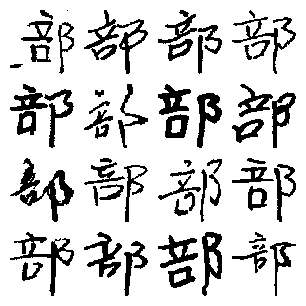 部部部部
部部部部
部部部部
部部部部